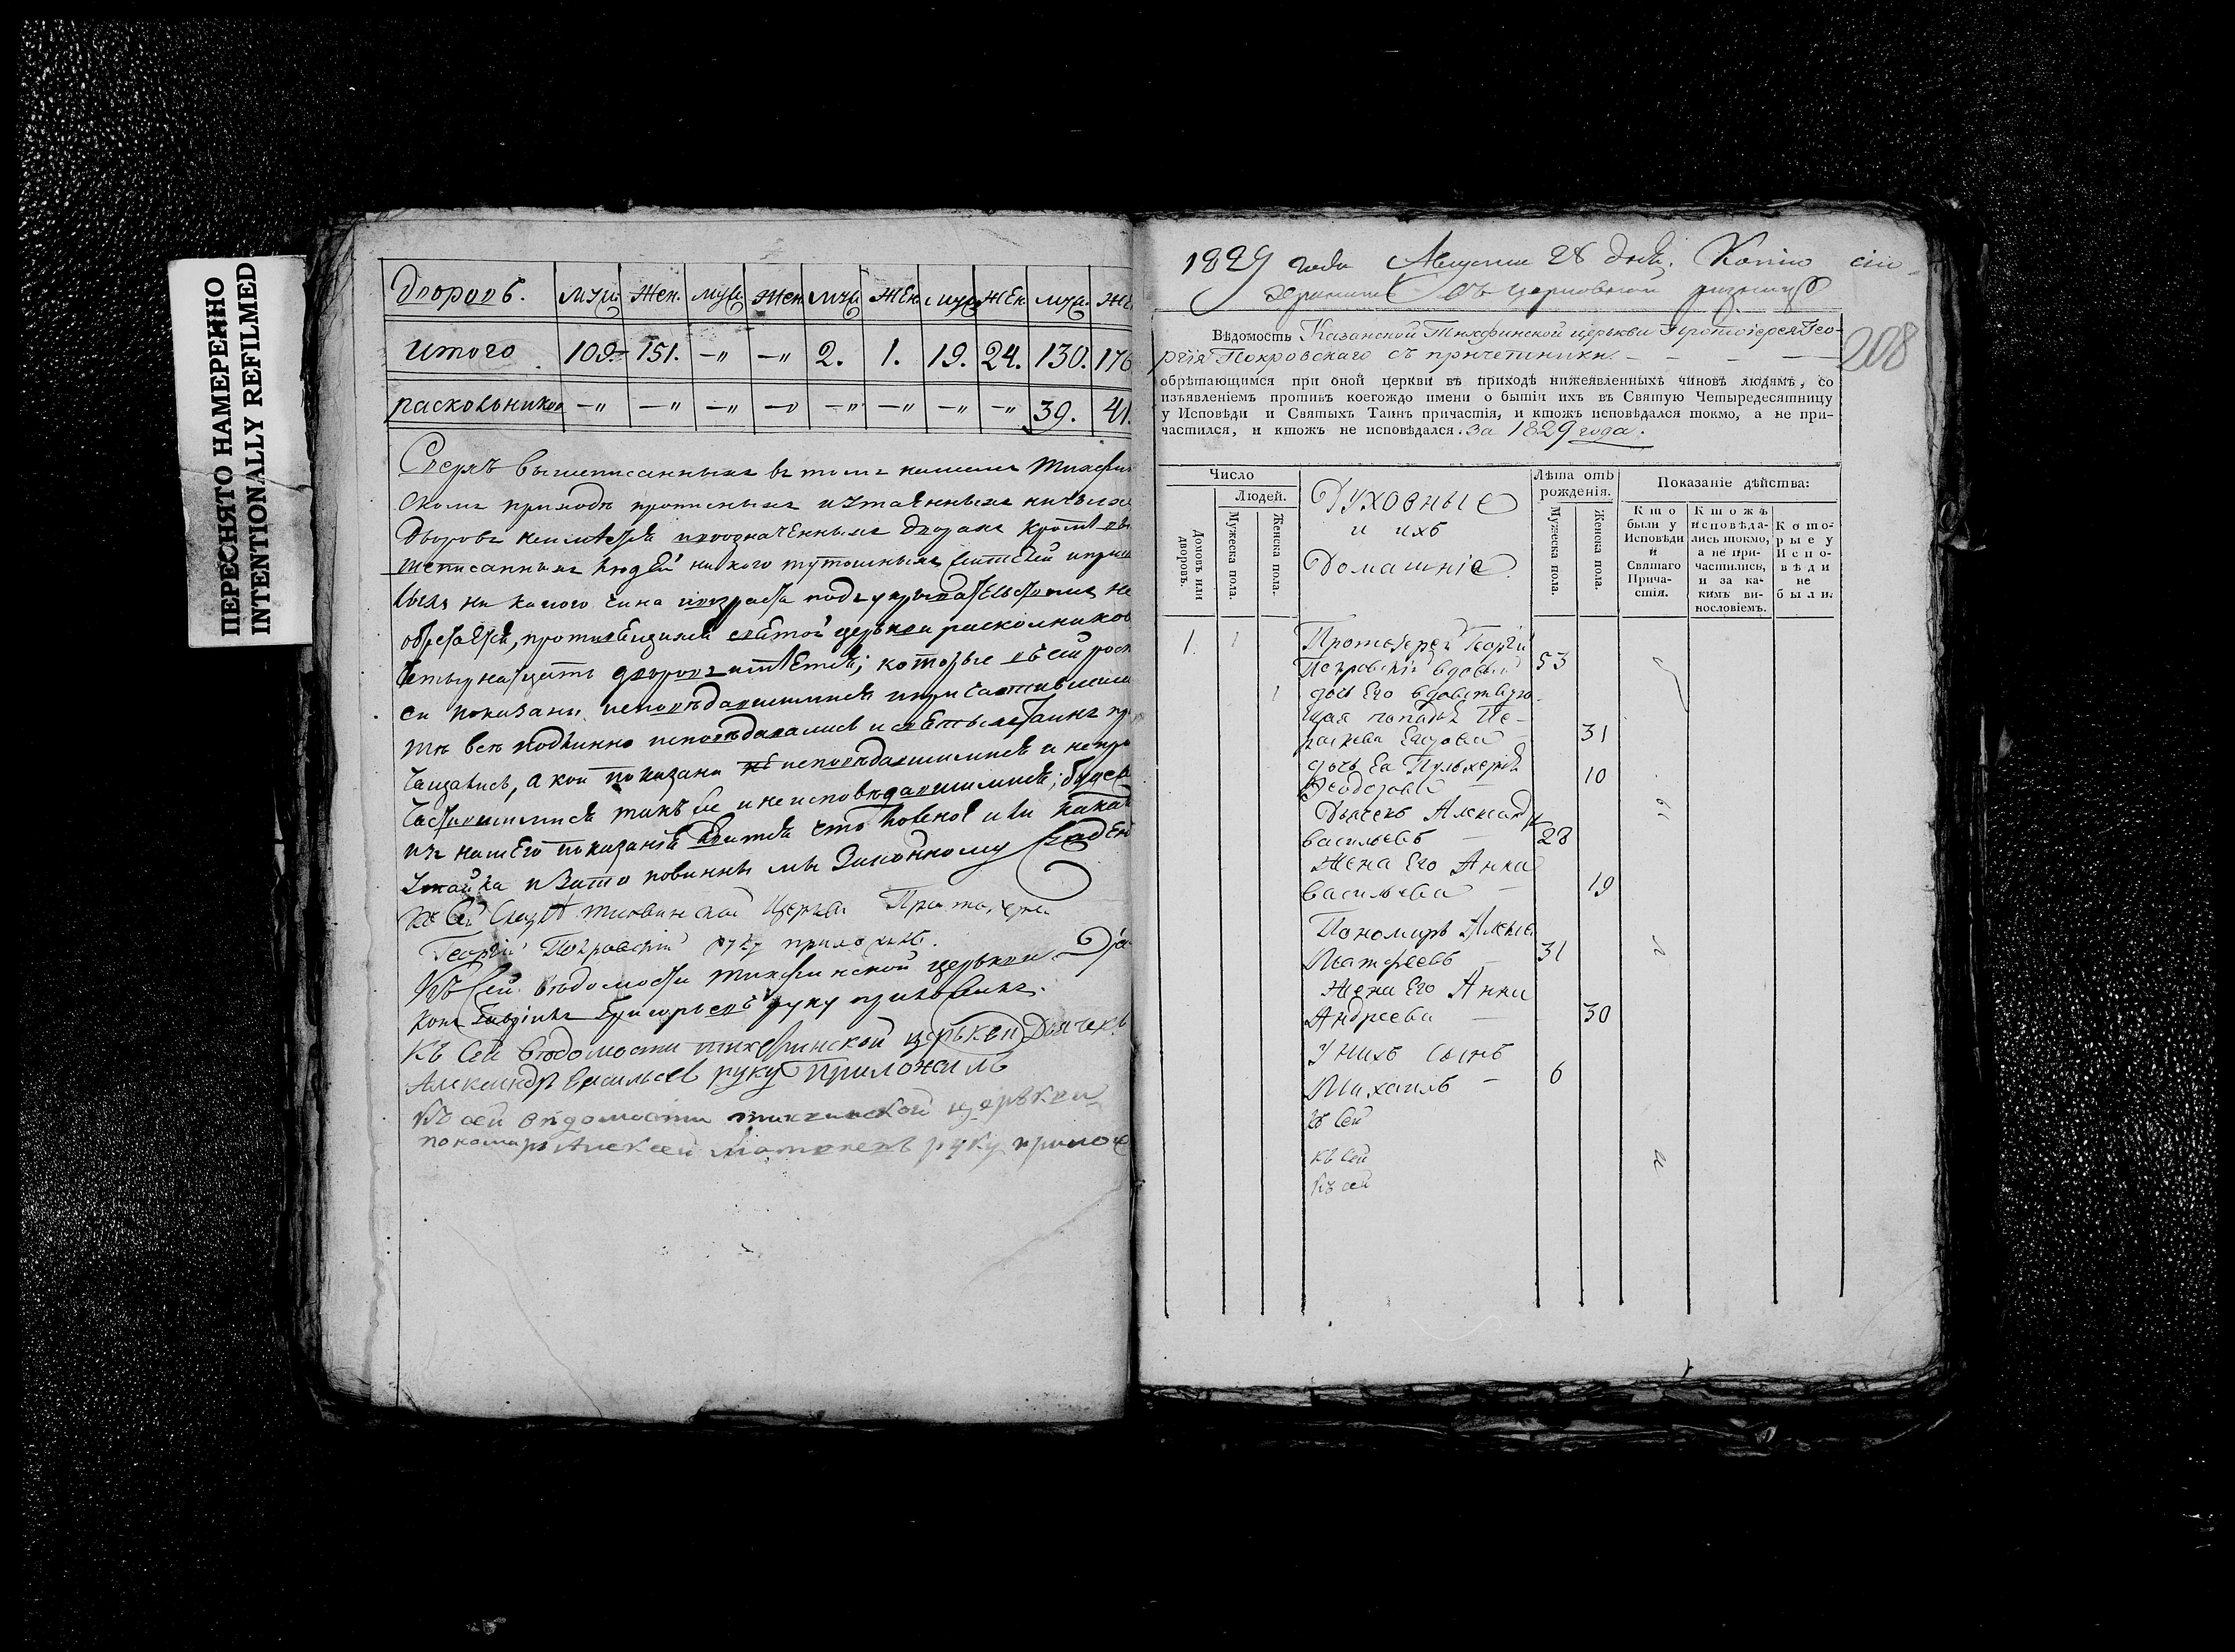 ПЕРЕСНЯТО НАМЕРЕННО
INTENTIONALLY REFILMED
Дворовъ. муж. жен. муж. жен. муж. жен. муж. жен. муж. же
Итого 109. 151. —„ —„ 2. 1. 19. 24. 130. 176
раскольниковъ —„ —„ —„ —„ —„ —„ —„ —„ 39. 41.
Сверхъ вышеписанныхъ въ томъ нашемъ Тихфин
скомъ приходѣ
дворовъ кроме вы
шеписанныхъ людей никого тутошныхъ
лыхъ ни какого чина
святой церькви расколников
четырнатцать дворовъ имѣется; которые въ сей рос
си показаны исповѣдавшимися и причастившими
тѣ все подлинно исповѣдавались и святыхъ Таинъ пр
чащались, а кои показаны не исповѣдавшимися и непри
частившимися такъ же и не исповѣдавшимися; буде
изъ нашего показанія явится что ложное или какая
утайка и зато повинны мы законному сужден
Къ сей Тихвинской Церкви Протоіерей
Георгій Покровскій руку приложилъ.
Къ сей вѣдомости тихфинской церькви Дья
конъ Григорьевъ руку приложилъ.
Къ сей вѣдомости тихфинской церькви Дьячекъ
Александръ Васильевъ руку приложилъ
Къ сей вѣдомости тихвинской церькви
пономарь Алексей Матвеевъ руку прилож
1829 года Августа 28 дня. Копію сію
хранить въ церковной ризницѣ
208
Вѣдомость Казанской Тихфинской церькви Протоіерея Гео-
ргія Покровскаго съ причетники. — — — —
обрѣтающимся при оной церкви въ приходѣ нижеявленныхъ чиновъ людямъ, со
изъявленіемъ противъ коегождо имени о бытіи ихъ въ Святую Четыредесятницу
у Исповѣди и Святыхъ Таинъ причастія, и ктожъ исповѣдался токмо, а не при-
частился, и ктожъ не исповѣдался. за 1829 года.
Число
Людей.
Домовъ или дворовъ.
Мужеска пола.
Женска пола.
Духовные
и ихъ
Домашніе.
Лѣта отъ рожденія.
Мужеска пола.
Женска пола.
Показаніе дѣйства:
Кто были у Исповѣди и Святаго Причастія.
Ктожъ исповѣдались токмо, а не причастились, и за какимъ винословіемъ.
Которые у Исповѣди не были.
1. 1 Протоіерей Георгій
Покровскій вдовый 53
1 дочь Его вдовствую-
щая попадья Пе-
раскева Егорова 31
дочь Ея Пульхерія
Феодорова — 10
Дьячекъ Александръ
Васильевъ — 28
Жена Его Анна
Васильева — 19
Пономарь Алексей
Матфеевъ — 31
Жена Его Анна
Андреева — 30
У нихъ сынъ
Михаилъ — 6
Къ сей
Къ сей
Къ сей